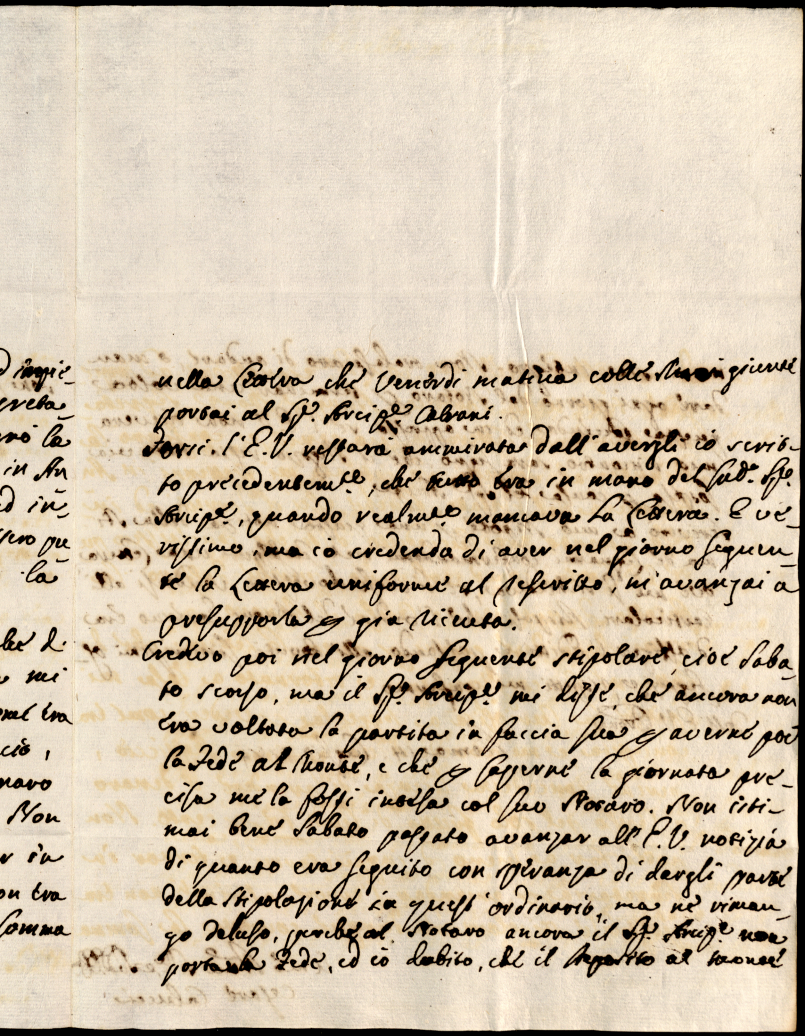 d impie-
greta-
la
in An-
ed in-
ssero pu-
la
mi
era
cio,
naro
Non
in
on era
somma
nella Lettera che Venerdi matina colle
portai al Sr. Arcipte.
Forsi l'E.V. restarà ammirata dall'avergli io scrit-
to precedentemte., che tutto era in mano del sudo. Sr.
Arcipte., quando realmte. mancava la Lettera. È ve-
rissimo, ma io credendo di aver nel giorno seguen-
te la Lettera uniforme al descritto, m'avanzai a
presupporla p. già riceuta.
Credevo poi nel giorno seguente stipolare, cioè saba-
to scorso, ma il Sr. Arcipte. mi disse, che ancora non
era voltata la partita in faccia sua p. averne poi
la Fede al Monte, e che p. saperne la giornata pre-
cisa me la fossi intesa col suo Notaro. Non isti-
mai bene Sabato passato avanzar all'E.V. notizia
di quanto era seguito con speranza di dargli parte
della stipolazione in quest'ordinario, ma ne riman-
go deluso, perche al Notaro ancora il Sr. Arcipte. non
porta la Fede, ed io dubito, che il deposito al monte